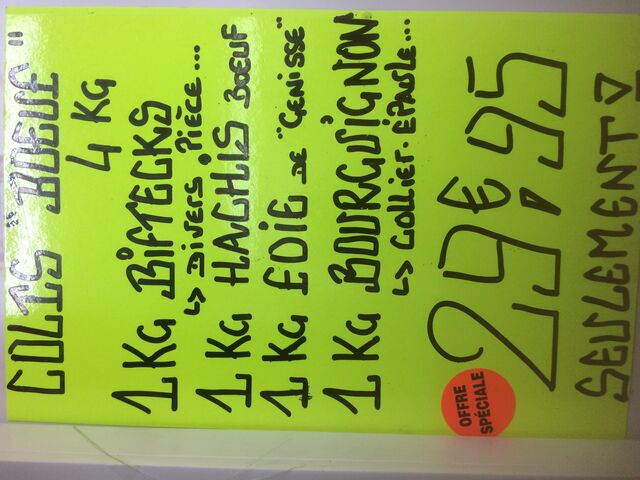 COLIS "DE BOEUF"
4 KG
1 KG BIFTECKS
↳ DIVERS PIÈCE...
1 KG HACHIS BOEUF
1 KG FOIE DE "GENISSE"
1 KG BOURGUIGNON
↳ Collier. ÉPAULE...
29€,95
OFFRE
SPÉCIALE
SEULEMENT